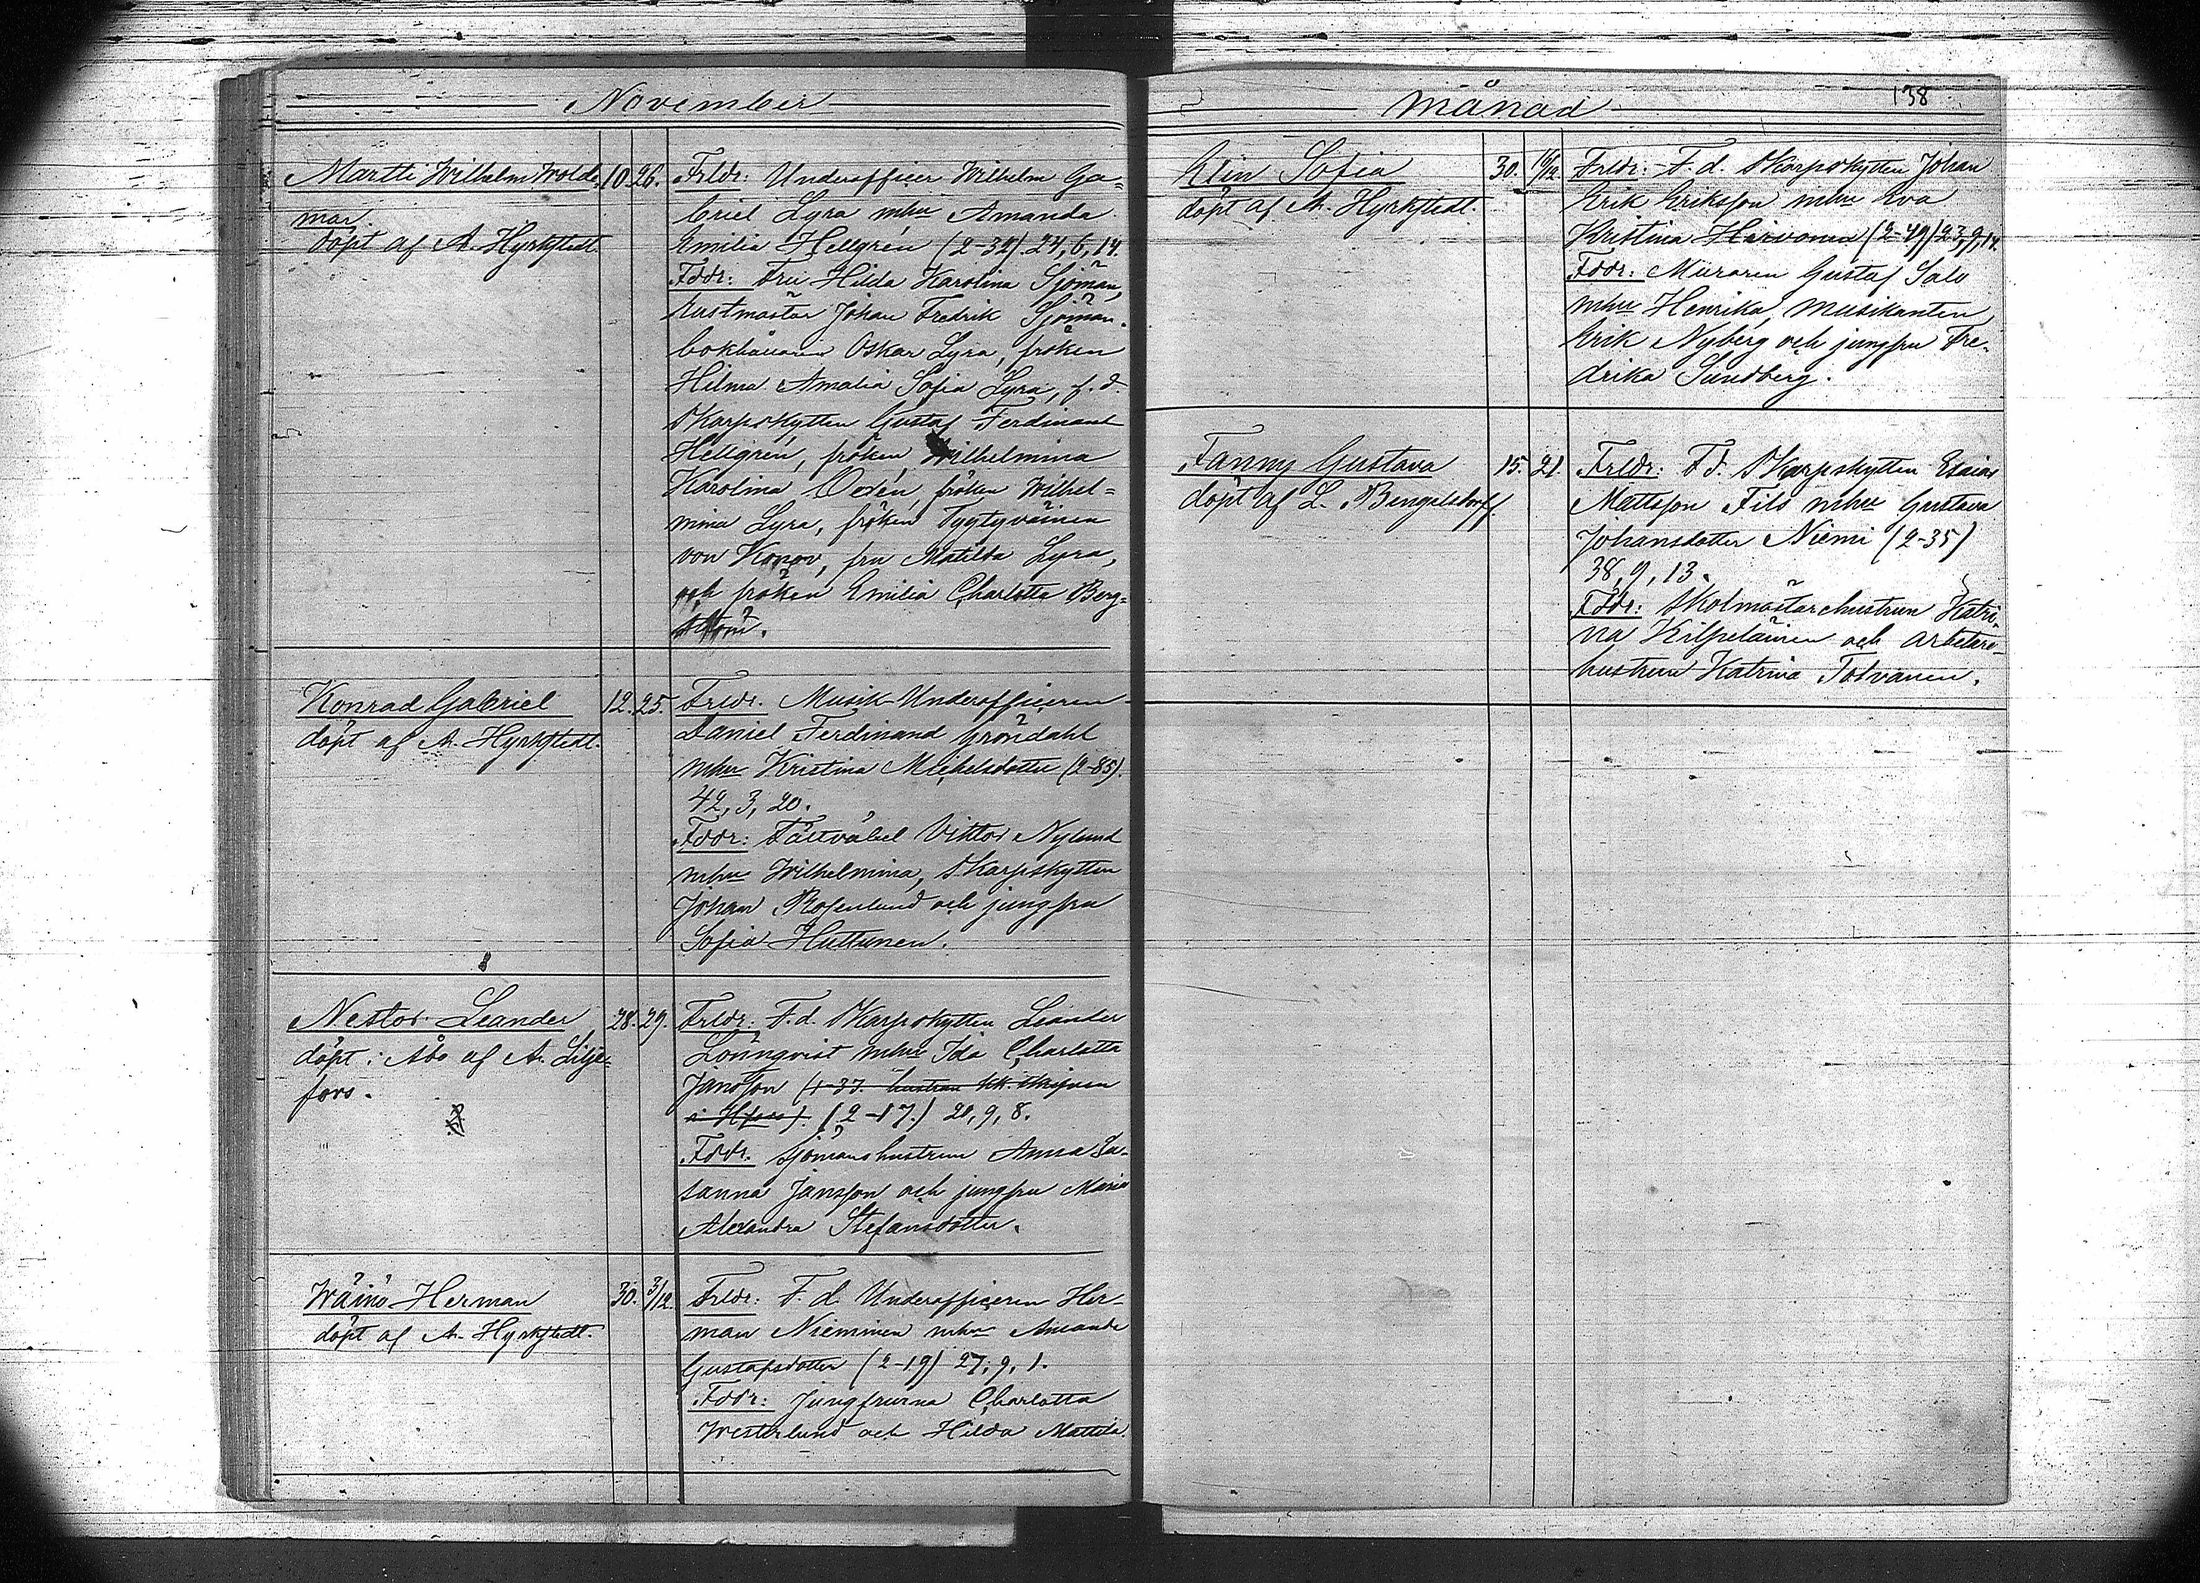 November
Martti Wilhelm Wolde-
mar
döpt af A. Hyrkstedt
10. 26.
Frldr: Underofficer Wilhelm Ga=
briel Lyra mhu Amanda
Emilia Hellgrén (2-32). 24, 6, 14.
Fddr: Fru Hilda Karolina Sjöman,
rustmästar Johan Fredrik Sjöman.
bokhållaren Oskar Lyra, fröken
Hilma Amalia Sofia Lyra, f. d.
skarpskytten Gustaf Ferdinant
Hellgrén, fröken Wilhelmina
Karolina fröken Wilhel=
mina Lyra, fröken Tygtyväinen
von Konov, fru Matilda Lyra,
och fröken Emilia Charlotta Berg=
ström.
Konrad Gabriel
döpt af A. Hyrkstedt.
12. 25.
Frldr. Musik-Underofficeren
Daniel Ferdinand Gröndahl
mhu Kristina Michelsdotter (2-85).
42, 3, 20.
Fddr: Fältväbel Viktor Nylund
mhu Wilhelmina, skarpskytten
Johan Rosenlund och jungfru
Sofia Huttunen.
Nestor Leander
döpt i Åbo af A. Lilje=
fors.
28. 29.
Frldr: F.d. Skarpskytten Leander
Lönnqvist mhu Ida Charlotta
Jansson hustrun
(2-17.) 20, 9, 8.
Fddr. sjömanshustrun Anna Su-
sanna Jansson och jungfru Maria
Alexandra Stefansdotter.
Wäinö Herman
döpt af A. Hyrkstedt.
30. 3/12.
Frldr: F. d. Underofficeren Her-
man Nieminen mhu Amanda
Gustafsdotter (2-19) 27, 9, 1.
Fddr: Jungfrurna Charlotta
Westerlund och Hilda Mattila.
månad
138
Elin Sofia
döpt af A. Hyrkstedt.
30. 10/12
Frldr: F. d. Skarpskytten Johan
Erik Eriksson mhu Eva
Kristina Hirvonen (2-49) 23, 9, 14.
Fddr: Muraren Gustaf Salo
mhu Henrika, Musikanten
Erik Nyberg och jungfru Fre-
drika Sundberg.
Fanny Gustava
döpt af L. Bengelsdorff.
15. 21.
Frldr: F d. Skarpskytten Esaias
Mattsson Fils mhu Gustava
Johansdotter Niemi (2-35)
38, 9, 13.
Fddr: Skolmästarehustrun Katri-
na Kilpeläinen och arbetare-
hustrun Katrina Tolvanen.